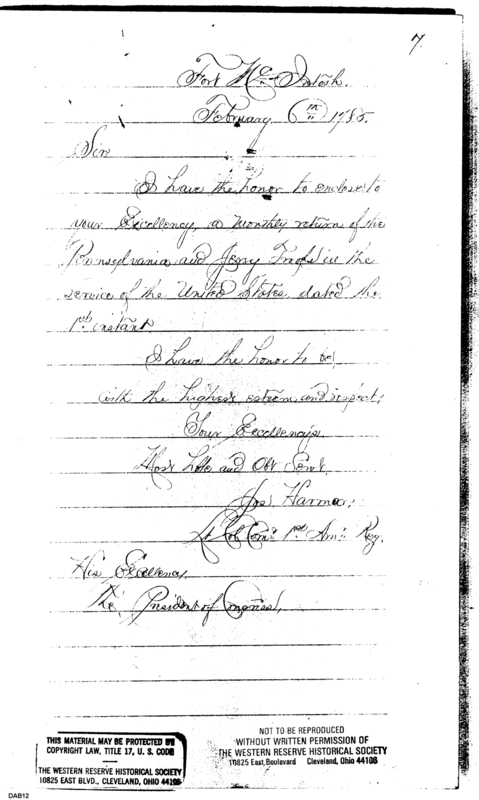 7.
Fort McIntosh.
February 6th 1785.
Sir
I have the honor to enclose to
your Excellency, a monthly return of the
Pennsylvania and Jersey Troops in the
service of the United States, dated the
1st instant
I have the honor to be,
with the highest esteem and respect,
Your Excellency's
Most Hble and Obt Servt
Jos Harmar,
Lt Col Comt 1st Amn Reg.
His Excellency,
The President of Congress,
THIS MATERIAL MAY BE PROTECTED BY
COPYRIGHT LAW, TITLE 17, U. S. CODE
THE WESTERN RESERVE HISTORICAL SOCIETY
10825 EAST BLVD., CLEVELAND, OHIO 44106
NOT TO BE REPRODUCED
WITHOUT WRITTEN PERMISSION OF
THE WESTERN RESERVE HISTORICAL SOCIETY
10825 East Boulevard Cleveland, Ohio 44106
DAB12